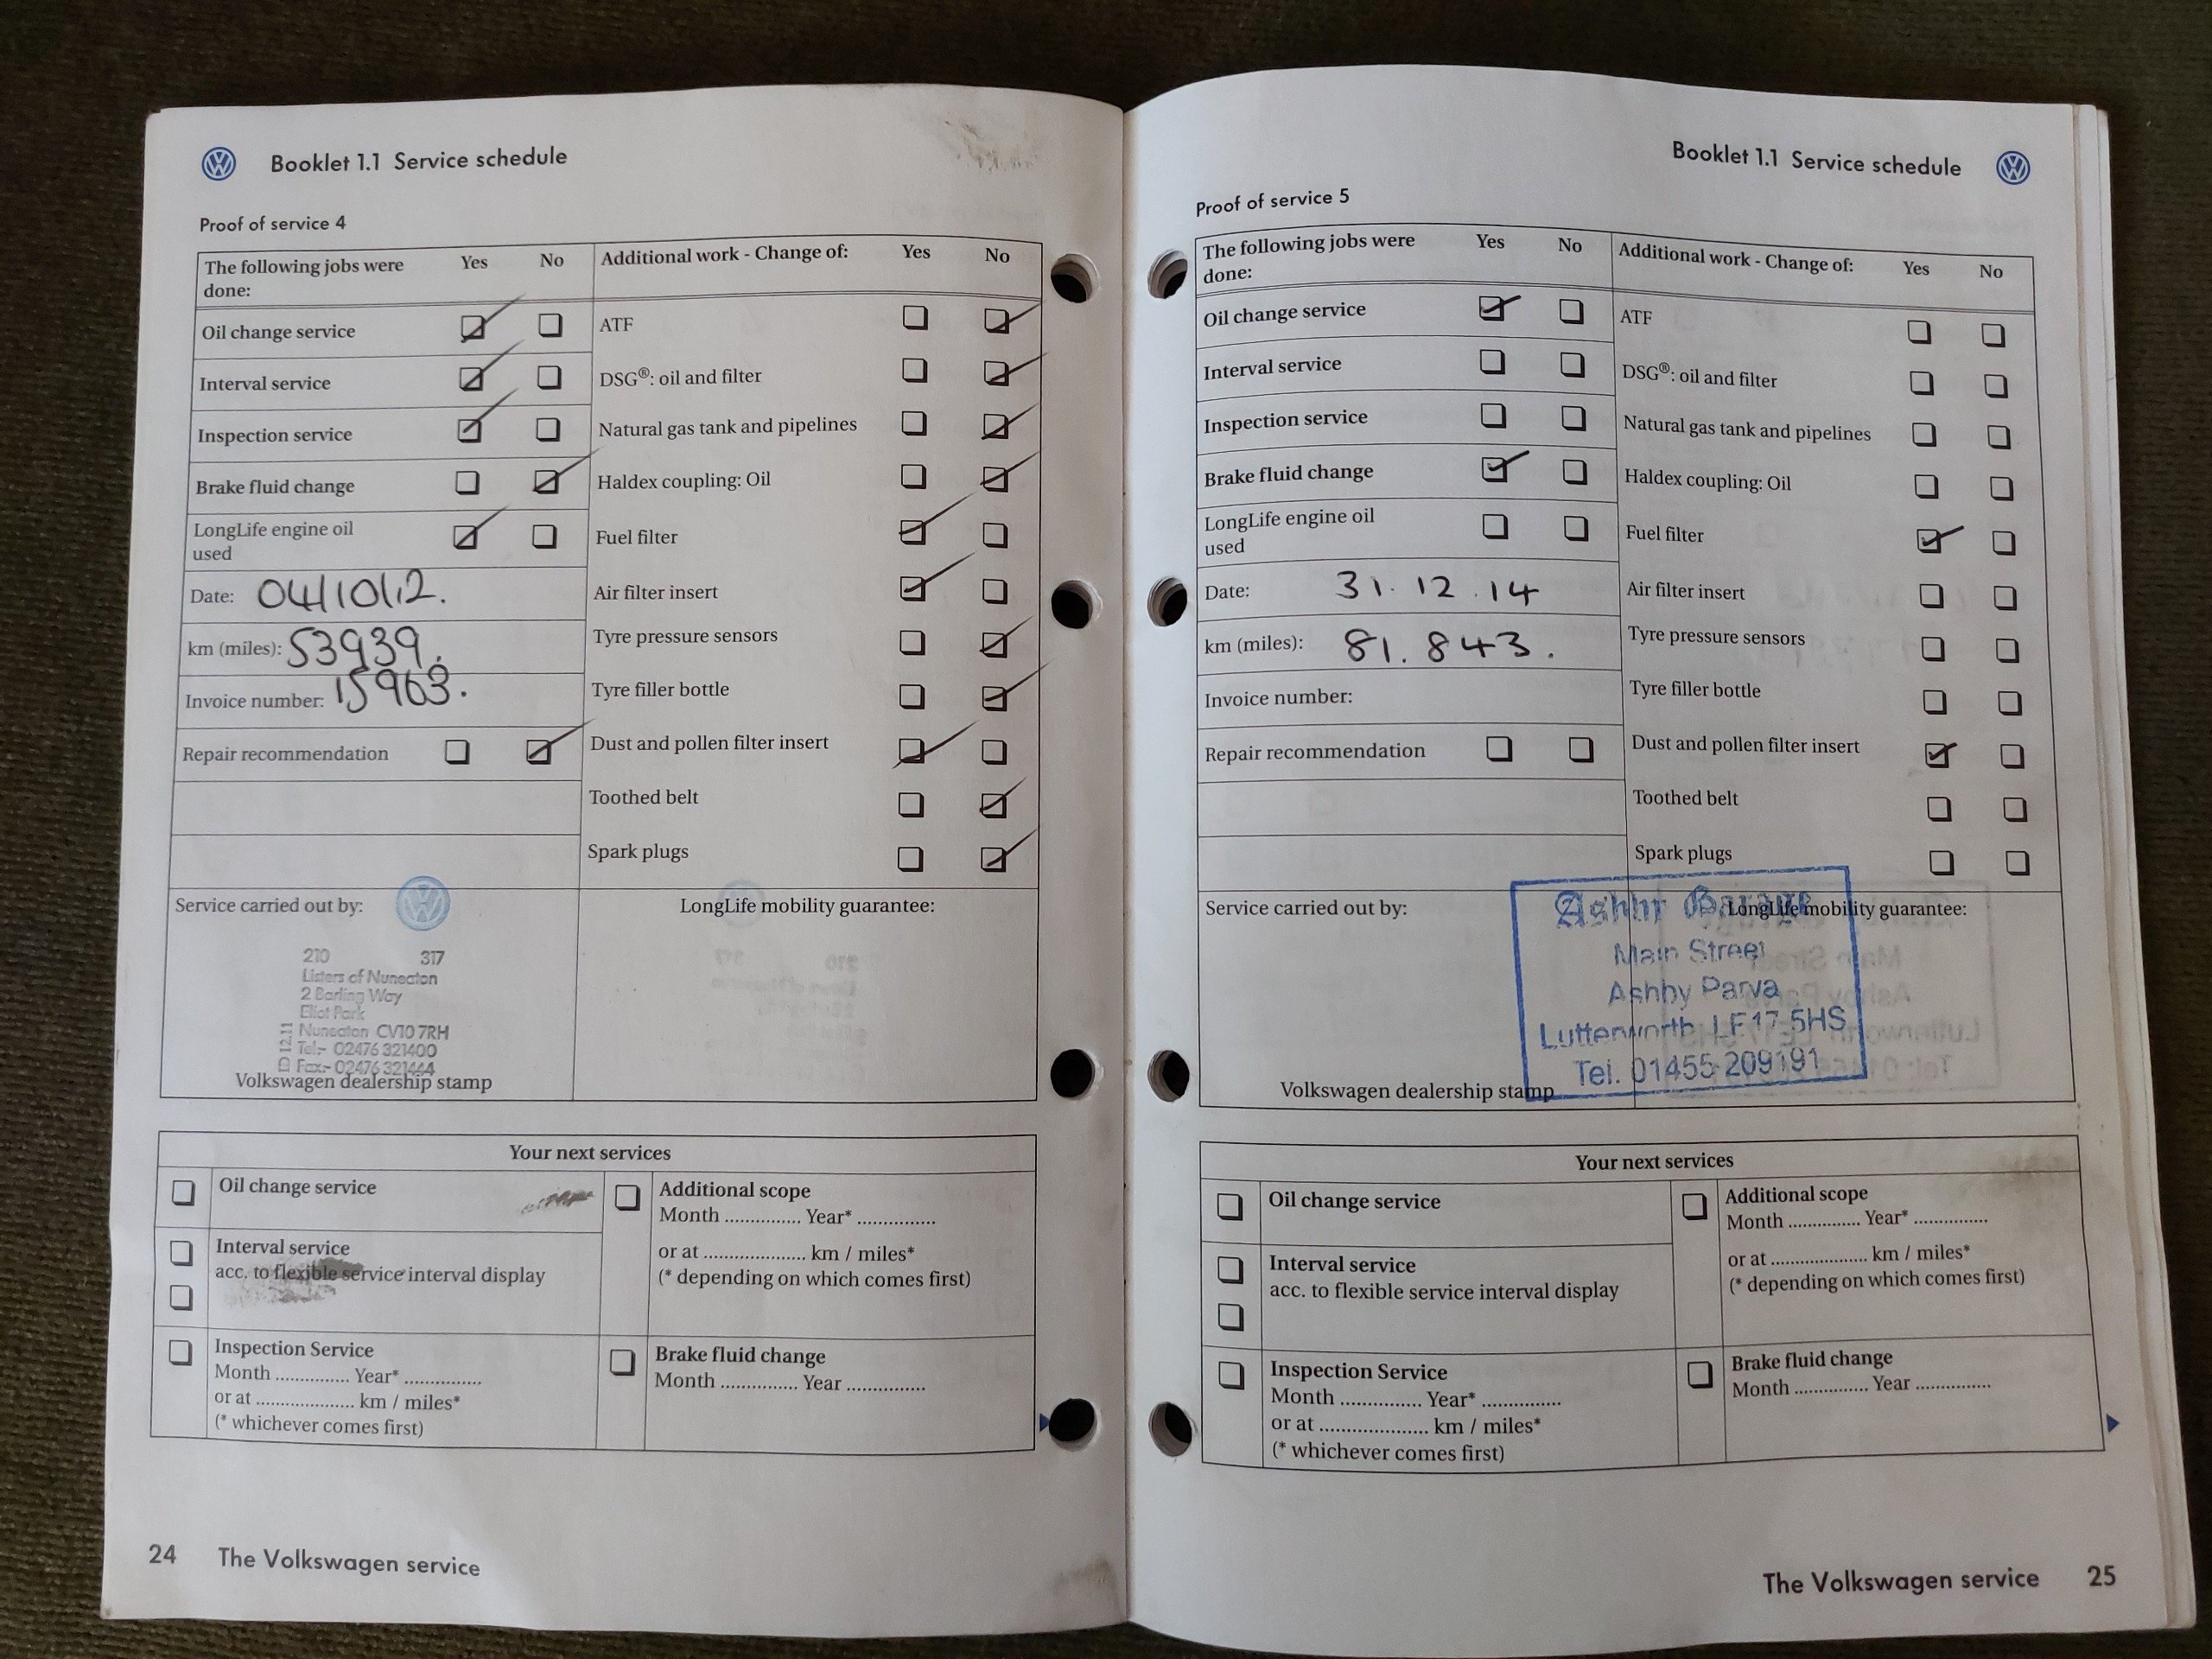 Booklet 1.1 Service schedule
Proof of service 4
The following jobs were done: Yes No
Oil change service
Interval service
Inspection service
Brake fluid change
LongLife engine oil used
Date: 04/10/12.
km (miles): 53939.
Invoice number: 15963.
Repair recommendation
Additional work - Change of: Yes No
ATF
DSG®: oil and filter
Natural gas tank and pipelines
Haldex coupling: Oil
Fuel filter
Air filter insert
Tyre pressure sensors
Tyre filler bottle
Dust and pollen filter insert
Toothed belt
Spark plugs
Service carried out by:
210 317
Listers of Nuneaton
2 Barling Way
Eliot Park
Nuneaton CV10 7RH
Tel:- 02476 321400
Fax:- 02476 321444
Volkswagen dealership stamp
LongLife mobility guarantee:
Your next services
Oil change service
Interval service
acc. to flexible service interval display
Inspection Service
Month .............. Year* ..............
or at .................... km / miles*
(* whichever comes first)
Additional scope
Month .............. Year* ..............
or at .................... km / miles*
(* depending on which comes first)
Brake fluid change
Month .............. Year ..............
24 The Volkswagen service
Booklet 1.1 Service schedule
Proof of service 5
The following jobs were done: Yes No
Oil change service
Interval service
Inspection service
Brake fluid change
LongLife engine oil used
Date: 31.12.14
km (miles): 81.843.
Invoice number:
Repair recommendation
Additional work - Change of: Yes No
ATF
DSG®: oil and filter
Natural gas tank and pipelines
Haldex coupling: Oil
Fuel filter
Air filter insert
Tyre pressure sensors
Tyre filler bottle
Dust and pollen filter insert
Toothed belt
Spark plugs
Service carried out by:
LongLife mobility guarantee:
Ashby Garage
Main Street
Ashby Parva
Lutterworth LE17 5HS
Tel. 01455 209191
Volkswagen dealership stamp
Your next services
Oil change service
Interval service
acc. to flexible service interval display
Inspection Service
Month .............. Year* ..............
or at .................... km / miles*
(* whichever comes first)
Additional scope
Month .............. Year* ..............
or at .................... km / miles*
(* depending on which comes first)
Brake fluid change
Month .............. Year ..............
The Volkswagen service 25